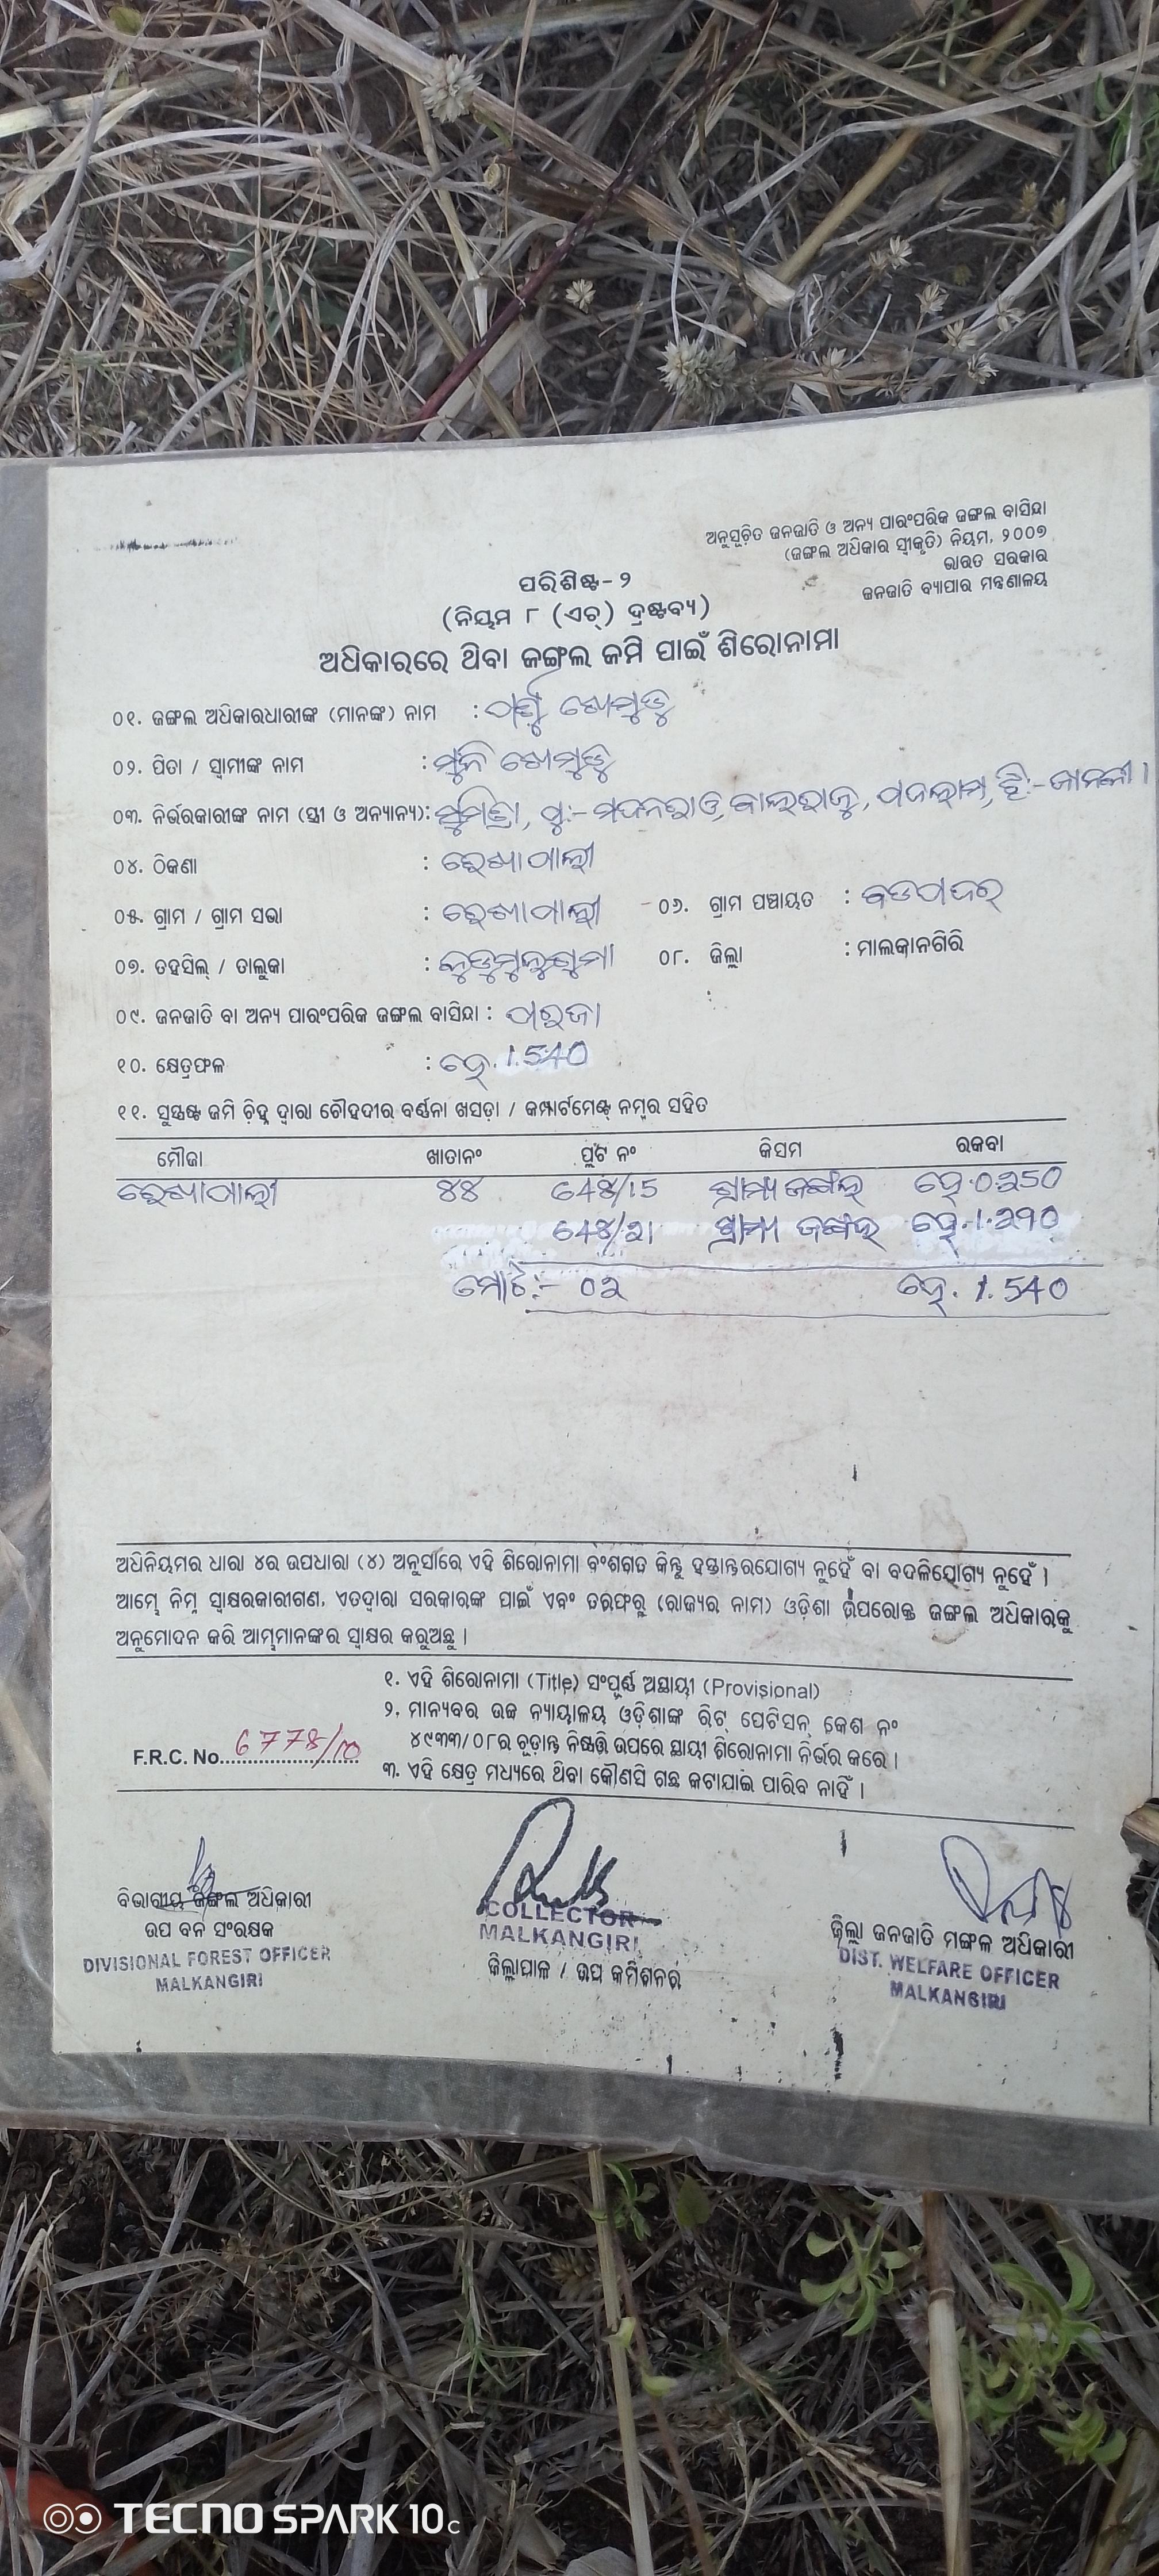 ଅନୁସୂଚିତ ଜନଜାତି ଓ ଅନ୍ୟ ପାରଂପରିକ ଜଙ୍ଗଲ ବାସିନ୍ଦା
(ଜଙ୍ଗଲ ଅଧିକାର ସ୍ୱୀକୃତି) ନିୟମ, ୨୦୦୭
ଭାରତ ସରକାର
ଜନଜାତି ବ୍ୟାପାର ମନ୍ତ୍ରଣାଳୟ
ପରିଶିଷ୍ଟ-୨
(ନିୟମ ୮ (ଏଚ୍) ଦ୍ରଷ୍ଟବ୍ୟ)
ଅଧିକାରରେ ଥିବା ଜଙ୍ଗଲ ଜମି ପାଇଁ ଶିରୋନାମା
୦୧. ଜଙ୍ଗଲ ଅଧିକାରଧାରୀଙ୍କ (ମାନଙ୍କ) ନାମ :
୦୨. ପିତା / ସ୍ୱାମୀଙ୍କ ନାମ :
୦୩. ନିର୍ଭରକାରୀଙ୍କ ନାମ (ସ୍ତ୍ରୀ ଓ ଅନ୍ୟାନ୍ୟ): ସୁମିତ୍ରା, ପୁ:-
୦୪. ଠିକଣା : ରେଖାପାଲ୍ଲୀ
୦୫. ଗ୍ରାମ / ଗ୍ରାମ ସଭା : ରେଖାପାଲ୍ଲୀ ୦୬. ଗ୍ରାମ ପଞ୍ଚାୟତ : ବଡପଦର୍
୦୭. ତହସିଲ୍ / ତାଲୁକା : କୁଡୁମୁଲୁଗୁମା ୦୮. ଜିଲ୍ଲା : ମାଲକାନଗିରି
୦୯. ଜନଜାତି ବା ଅନ୍ୟ ପାରଂପରିକ ଜଙ୍ଗଲ ବାସିନ୍ଦା : ପରଜା
୧୦. କ୍ଷେତ୍ରଫଳ : ହେ. 1.540
୧୧. ସୁସ୍ପଷ୍ଟ ଜମି ଚିହ୍ନ ଦ୍ୱାରା ଚୌହଦୀର ବର୍ଣ୍ଣନା ଖସଡ଼ା / କମ୍ପାର୍ଟମେଣ୍ଟ୍ ନମ୍ବର ସହିତ
ମୌଜା ଖାତାନଂ ପ୍ଲଟ ନଂ କିସମ ରକବା
ରେଖାପାଲ୍ଲୀ ୪୪ 64୫/15 ଗ୍ରାମ୍ୟ ଜଙ୍ଗଲ ହେ.0.250
64୫/21 ଗ୍ରାମ୍ୟ ଜଙ୍ଗଲ ହେ.1.290
ମୋଟ:- ୦2 ହେ. 1.540
ଅଧିନିୟମର ଧାରା ୪ର ଉପଧାରା (୪) ଅନୁସାରେ ଏହି ଶିରୋନାମା ବଂଶଗତ କିନ୍ତୁ ହସ୍ତାନ୍ତରଯୋଗ୍ୟ ନୁହେଁ ବା ବଦଳିଯୋଗ୍ୟ ନୁହେଁ ।
ଆମ୍ଭେ ନିମ୍ନ ସ୍ୱାକ୍ଷରକାରୀଗଣ, ଏତଦ୍ୱାରା ସରକାରଙ୍କ ପାଇଁ ଏବଂ ତରଫରୁ (ରାଜ୍ୟର ନାମ) ଓଡ଼ିଶା ଉପରୋକ୍ତ ଜଙ୍ଗଲ ଅଧିକାରକୁ
ଅନୁମୋଦନ କରି ଆମ୍ଭମାନଙ୍କର ସ୍ୱାକ୍ଷର କରୁଅଛୁ ।
୧. ଏହି ଶିରୋନାମା (Title) ସଂପୂର୍ଣ୍ଣ ଅସ୍ଥାୟୀ (Provisional)
୨. ମାନ୍ୟବର ଉଚ୍ଚ ନ୍ୟାୟାଳୟ ଓଡ଼ିଶାଙ୍କ ରିଟ୍ ପେଟିସନ୍ କେଶ ନଂ
୪୯୩୩/୦୮ର ଚୂଡ଼ାନ୍ତ ନିଷ୍ପତ୍ତି ଉପରେ ସ୍ଥାୟୀ ଶିରୋନାମା ନିର୍ଭର କରେ ।
୩. ଏହି କ୍ଷେତ୍ର ମଧ୍ୟରେ ଥିବା କୌଣସି ଗଛ କଟାଯାଇ ପାରିବ ନାହିଁ ।
F.R.C. No. 677୫/10
ବିଭାଗୀୟ ଜଙ୍ଗଲ ଅଧିକାରୀ
ଉପ ବନ ସଂରକ୍ଷକ
DIVISIONAL FOREST OFFICER
MALKANGIRI
COLLECTOR
MALKANGIRI
ଜିଲ୍ଲାପାଳ / ଉପ କମିଶନର
ଜିଲ୍ଲା ଜନଜାତି ମଙ୍ଗଳ ଅଧିକାରୀ
DIST. WELFARE OFFICER
MALKANGIRI
TECNO SPARK 10c